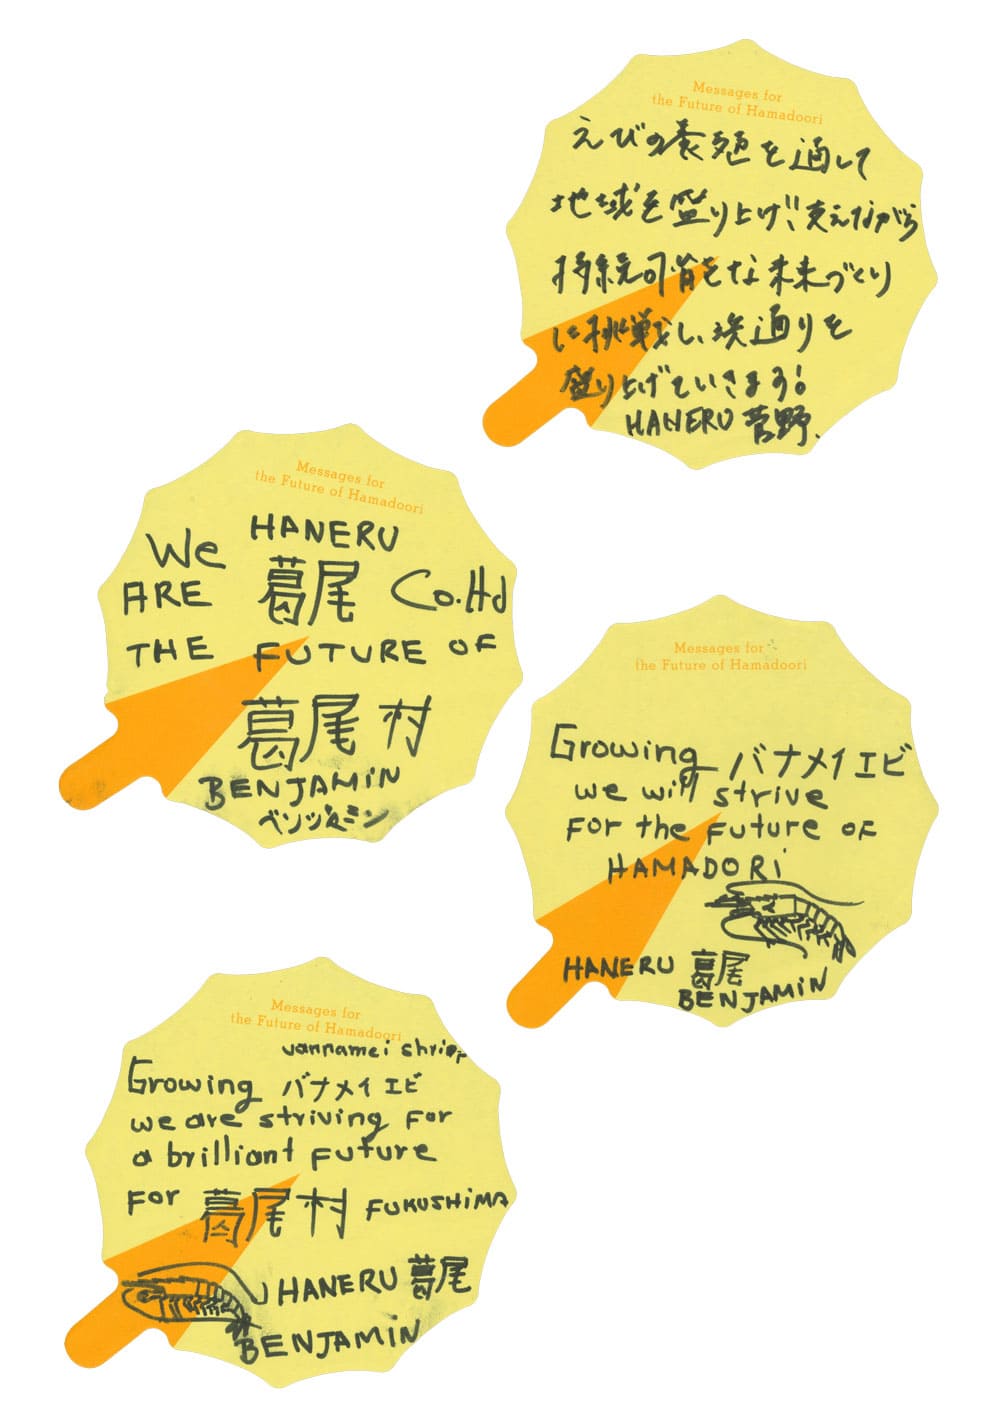 Messages for
the Future of Hamadoori
えびの養殖を通して
地域を盛り上げ、支えながら
持続可能な未来づくり
に挑戦し、浜通りを
盛り上げていきます!
HANERU 菅野.
Messages for
the Future of Hamadoori
We HANERU
ARE 葛尾 Co.ltd
THE FUTURE OF
葛尾村
BENJAMIN
ベンジャミン
Messages for
the Future of Hamadoori
Growing バナメイエビ
we will strive
For the Future OF
HAMADORi
HANERU 葛尾
BENJAMiN
Messages for
the Future of Hamadoori
vannamei shrimp
Growing バナメイエビ
we are striving For
a brilliant Future
For 葛尾村 FUKUSHiMA
HANERU 葛尾
BENJAMiN